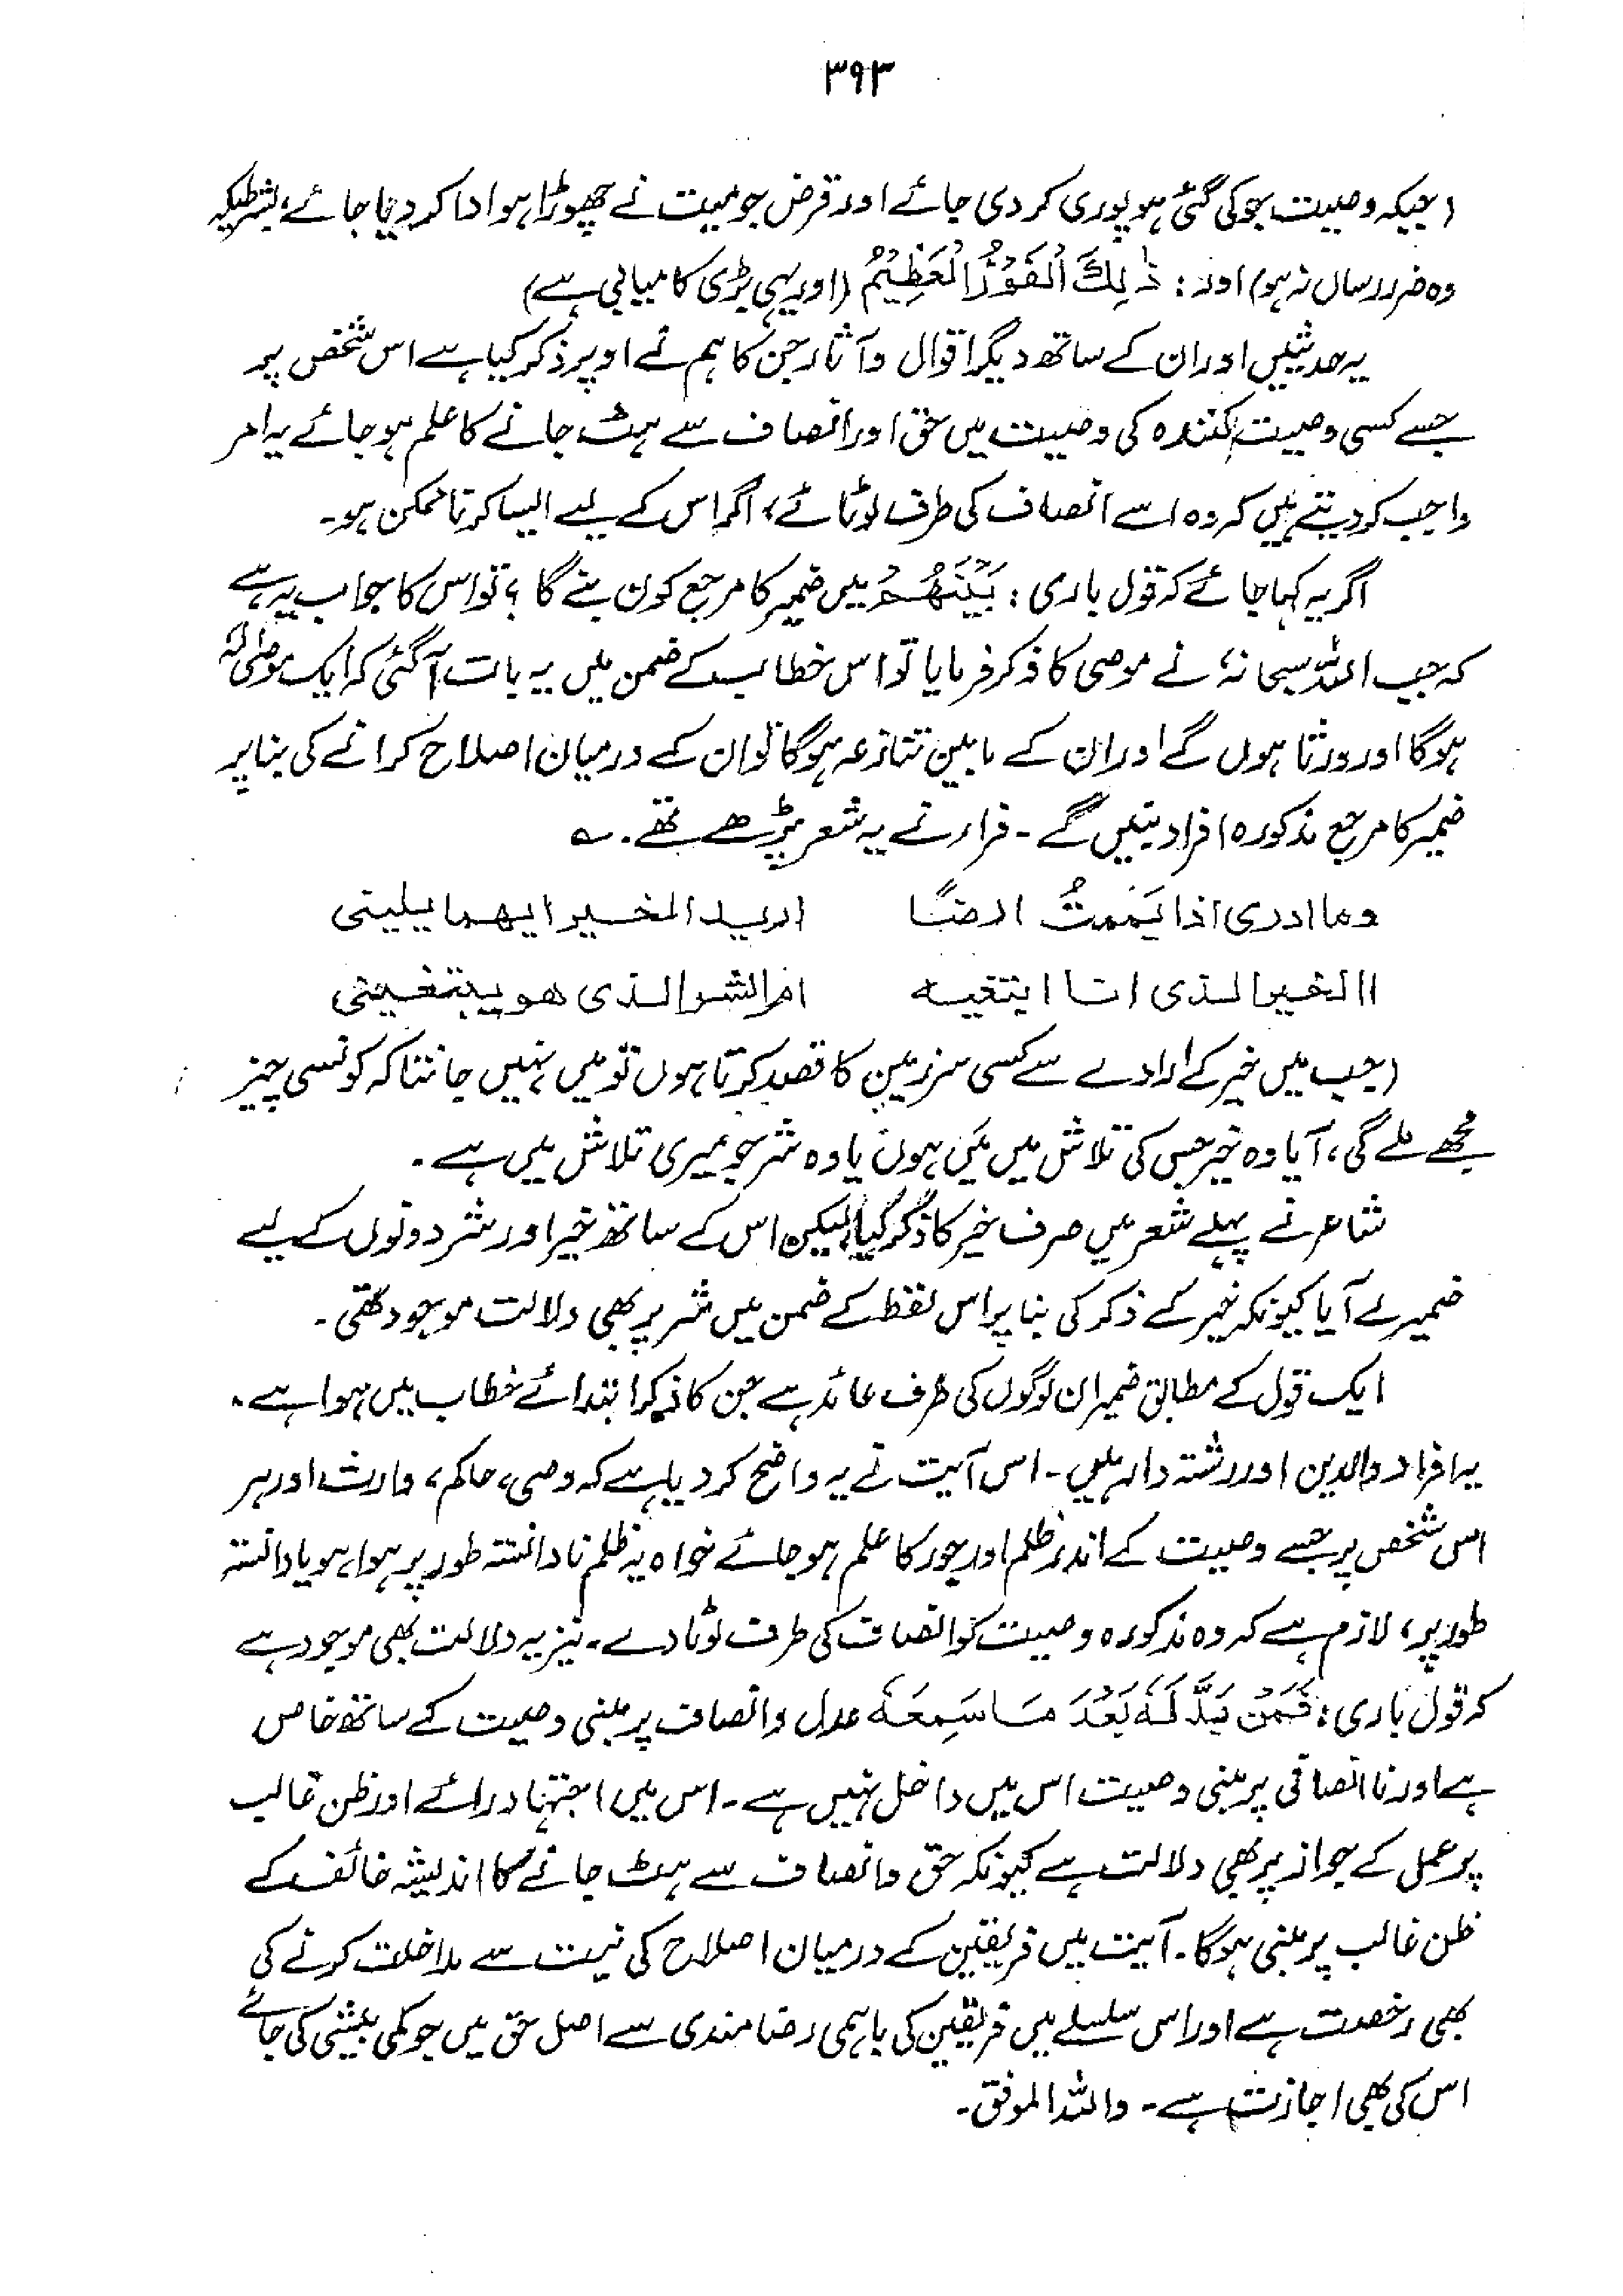 ۳۹۳
(جبکہ وصیت جو کی گئی ہو پوری کر دی جائے اور قرض جو میت نے چھوڑا ہو ادا کر دیا جائے، بشرطیکہ
وہ ضرر رساں نہ ہو) اور : ذٰلِكَ الْفَوْزُ الْعَظِيْمُ (اور یہی بڑی کامیابی ہے)
یہ حدیثیں اور ان کے ساتھ دیگر اقوال وآثار جن کا ہم نے اوپر ذکر کیا ہے اس شخص پر
جسے کسی وصیت کنندہ کی وصیت میں حق اور انصاف سے ہٹ جانے کا علم ہو جائے یہ امر
واجب کر دیتے ہیں کہ وہ اسے انصاف کی طرف لوٹائے، اگر اس کے لیے ایسا کرنا ممکن ہو۔
اگر یہ کہا جائے کہ قول باری : بَيْنَهُمْ میں ضمیر کا مرجع کون بنے گا ؟ تو اس کا جواب یہ ہے
کہ جب اللہ سبحانہٗ نے موصی کا ذکر فرمایا تو اس خطاب کے ضمن میں یہ بات آگئی کہ ایک موصیٰ لہٗ
ہوگا اور ورثا ہوں گے اور ان کے مابین تنازعہ ہوگا تو ان کے درمیان اصلاح کرانے کی بنا پر
ضمیر کا مرجع مذکورہ افراد بنیں گے ۔ فراء نے یہ شعر پڑھے تھے ۔ ؎
وما ادری اذا یَمَمتُ ارضًا ارید الخیر ایهما یلینی
االخیر الذی انا ابتغیه ام الشر الذی هو یبتغینی
(جب میں خیر کے ارادے سے کسی سرزمین کا قصد کرتا ہوں تو میں نہیں جانتا کہ کونسی چیز
مجھے ملے گی، آیا وہ خیر جس کی تلاش میں مَیں ہوں یا وہ شر جو میری تلاش میں ہے ۔
شاعر نے پہلے شعر میں صرف خیر کا ذکر کیا، لیکن اس کے ساتھ خیر اور شر دونوں کے لیے
ضمیر لے آیا کیونکہ خیر کے ذکر کی بنا پر اس لفظ کے ضمن میں شر پر بھی دلالت موجود تھی ۔
ایک قول کے مطابق ضمیر ان لوگوں کی طرف عائد ہے جن کا ذکر ابتدائے خطاب میں ہوا ہے ۔
یہ افراد والدین اور رشتہ دار ہیں ۔ اس آیت نے یہ واضح کر دیا ہے کہ وصی، حاکم، وارث اور ہر
اس شخص پر جسے وصیت کے اندر ظلم اور جور کا علم ہو جائے خواہ یہ ظلم نادانستہ طور پر ہوا ہو یا دانستہ
طور پر، لازم ہے کہ وہ مذکورہ وصیت کو انصاف کی طرف لوٹا دے ۔ نیز یہ دلالت بھی موجود ہے
کہ قول باری : فَمَنْ بَدَّلَهٗ بَعْدَ مَا سَمِعَهٗ عدل و انصاف پر مبنی وصیت کے ساتھ خاص
ہے اور ناانصافی پر مبنی وصیت اس میں داخل نہیں ہے ۔ اس میں اجتہاد رائے اور ظن غالب
پر عمل کے جواز پر بھی دلالت ہے کیونکہ حق و انصاف سے ہٹ جانے کا اندیشہ خائف کے
ظن غالب پر مبنی ہوگا ۔ آیت میں فریقین کے درمیان اصلاح کی نیت سے مداخلت کرنے کی
بھی رخصت ہے اور اس سلسلے میں فریقین کی باہمی رضامندی سے اصل حق میں جو کمی بیشی کی جائے
اس کی بھی اجازت ہے ۔ واللہ الموفق ۔